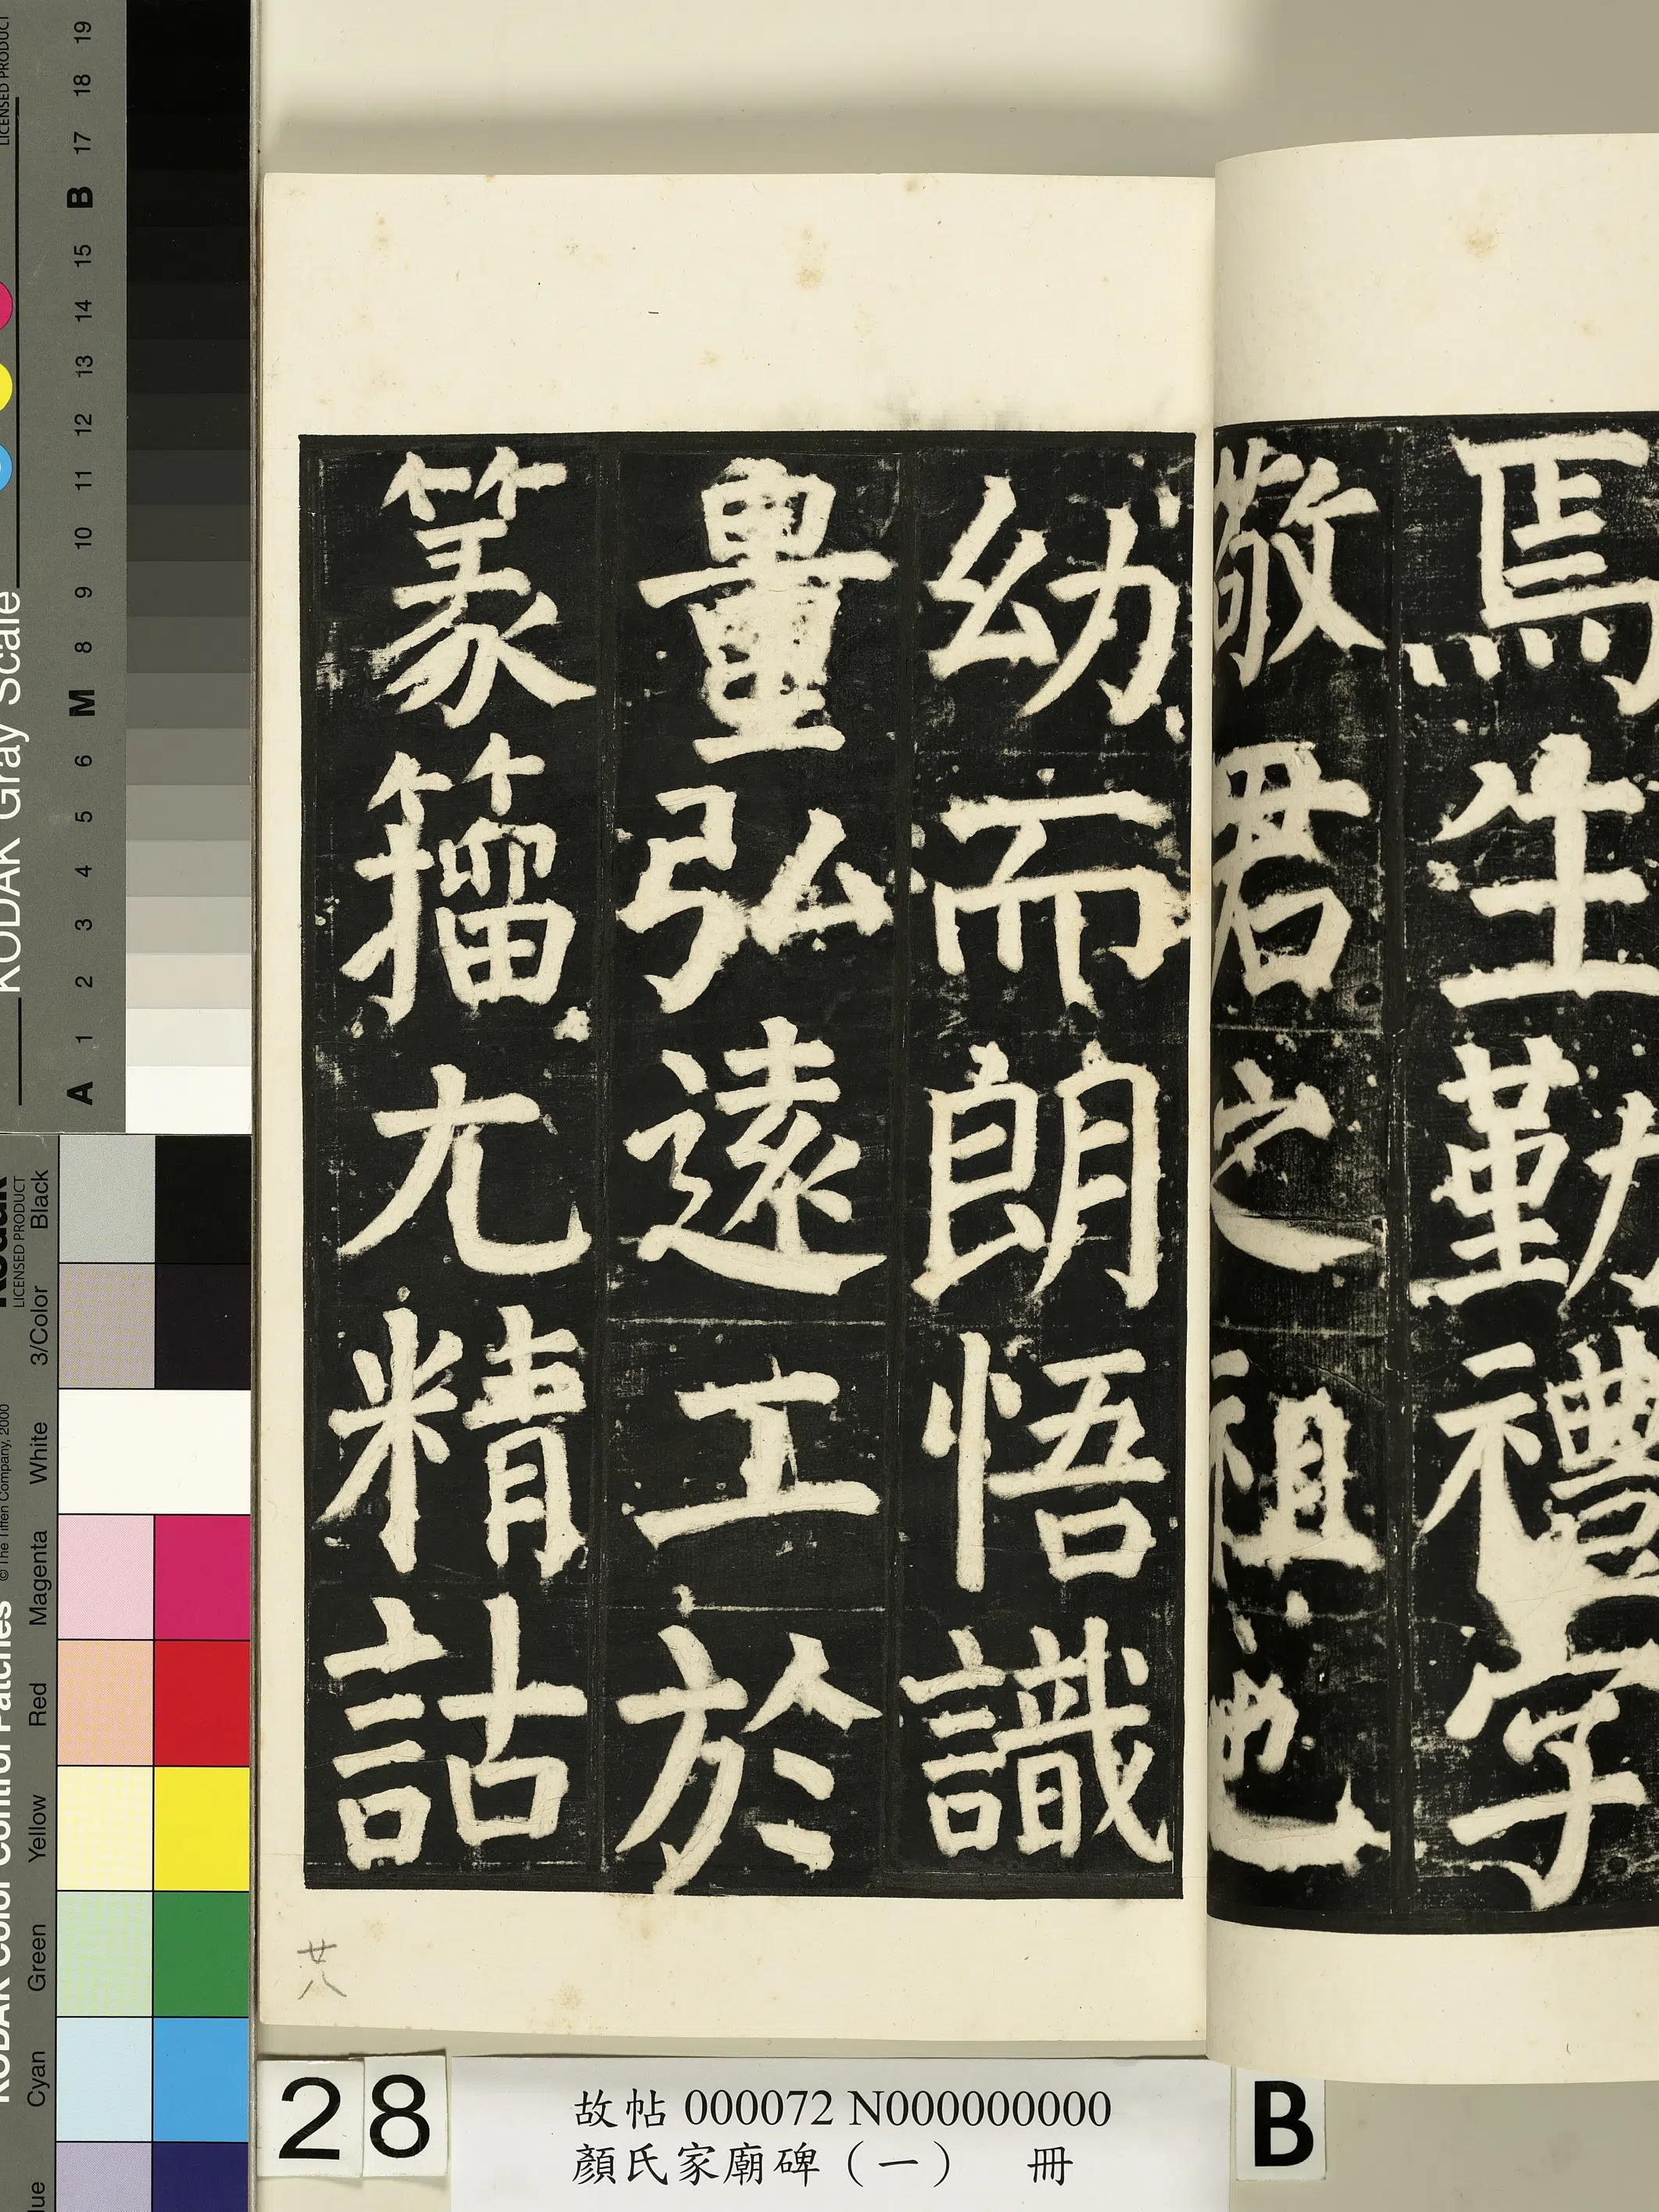 焉生勤禮字
敬君之祖也
幼而朗悟識
量弘遠工於
篆籀尤精詁
廿八
28
故帖 000072 N000000000
顏氏家廟碑（一） 冊
B
KODAK Gray Scale
LICENSED PRODUCT
A 1 2 3 4 5 6 M 8 9 10 11 12 13 14 15 B 17 18 19
KODAK Color Control Patches
© The Tiffen Company, 2000
LICENSED PRODUCT
Cyan Green Yellow Red Magenta White 3/Color Black